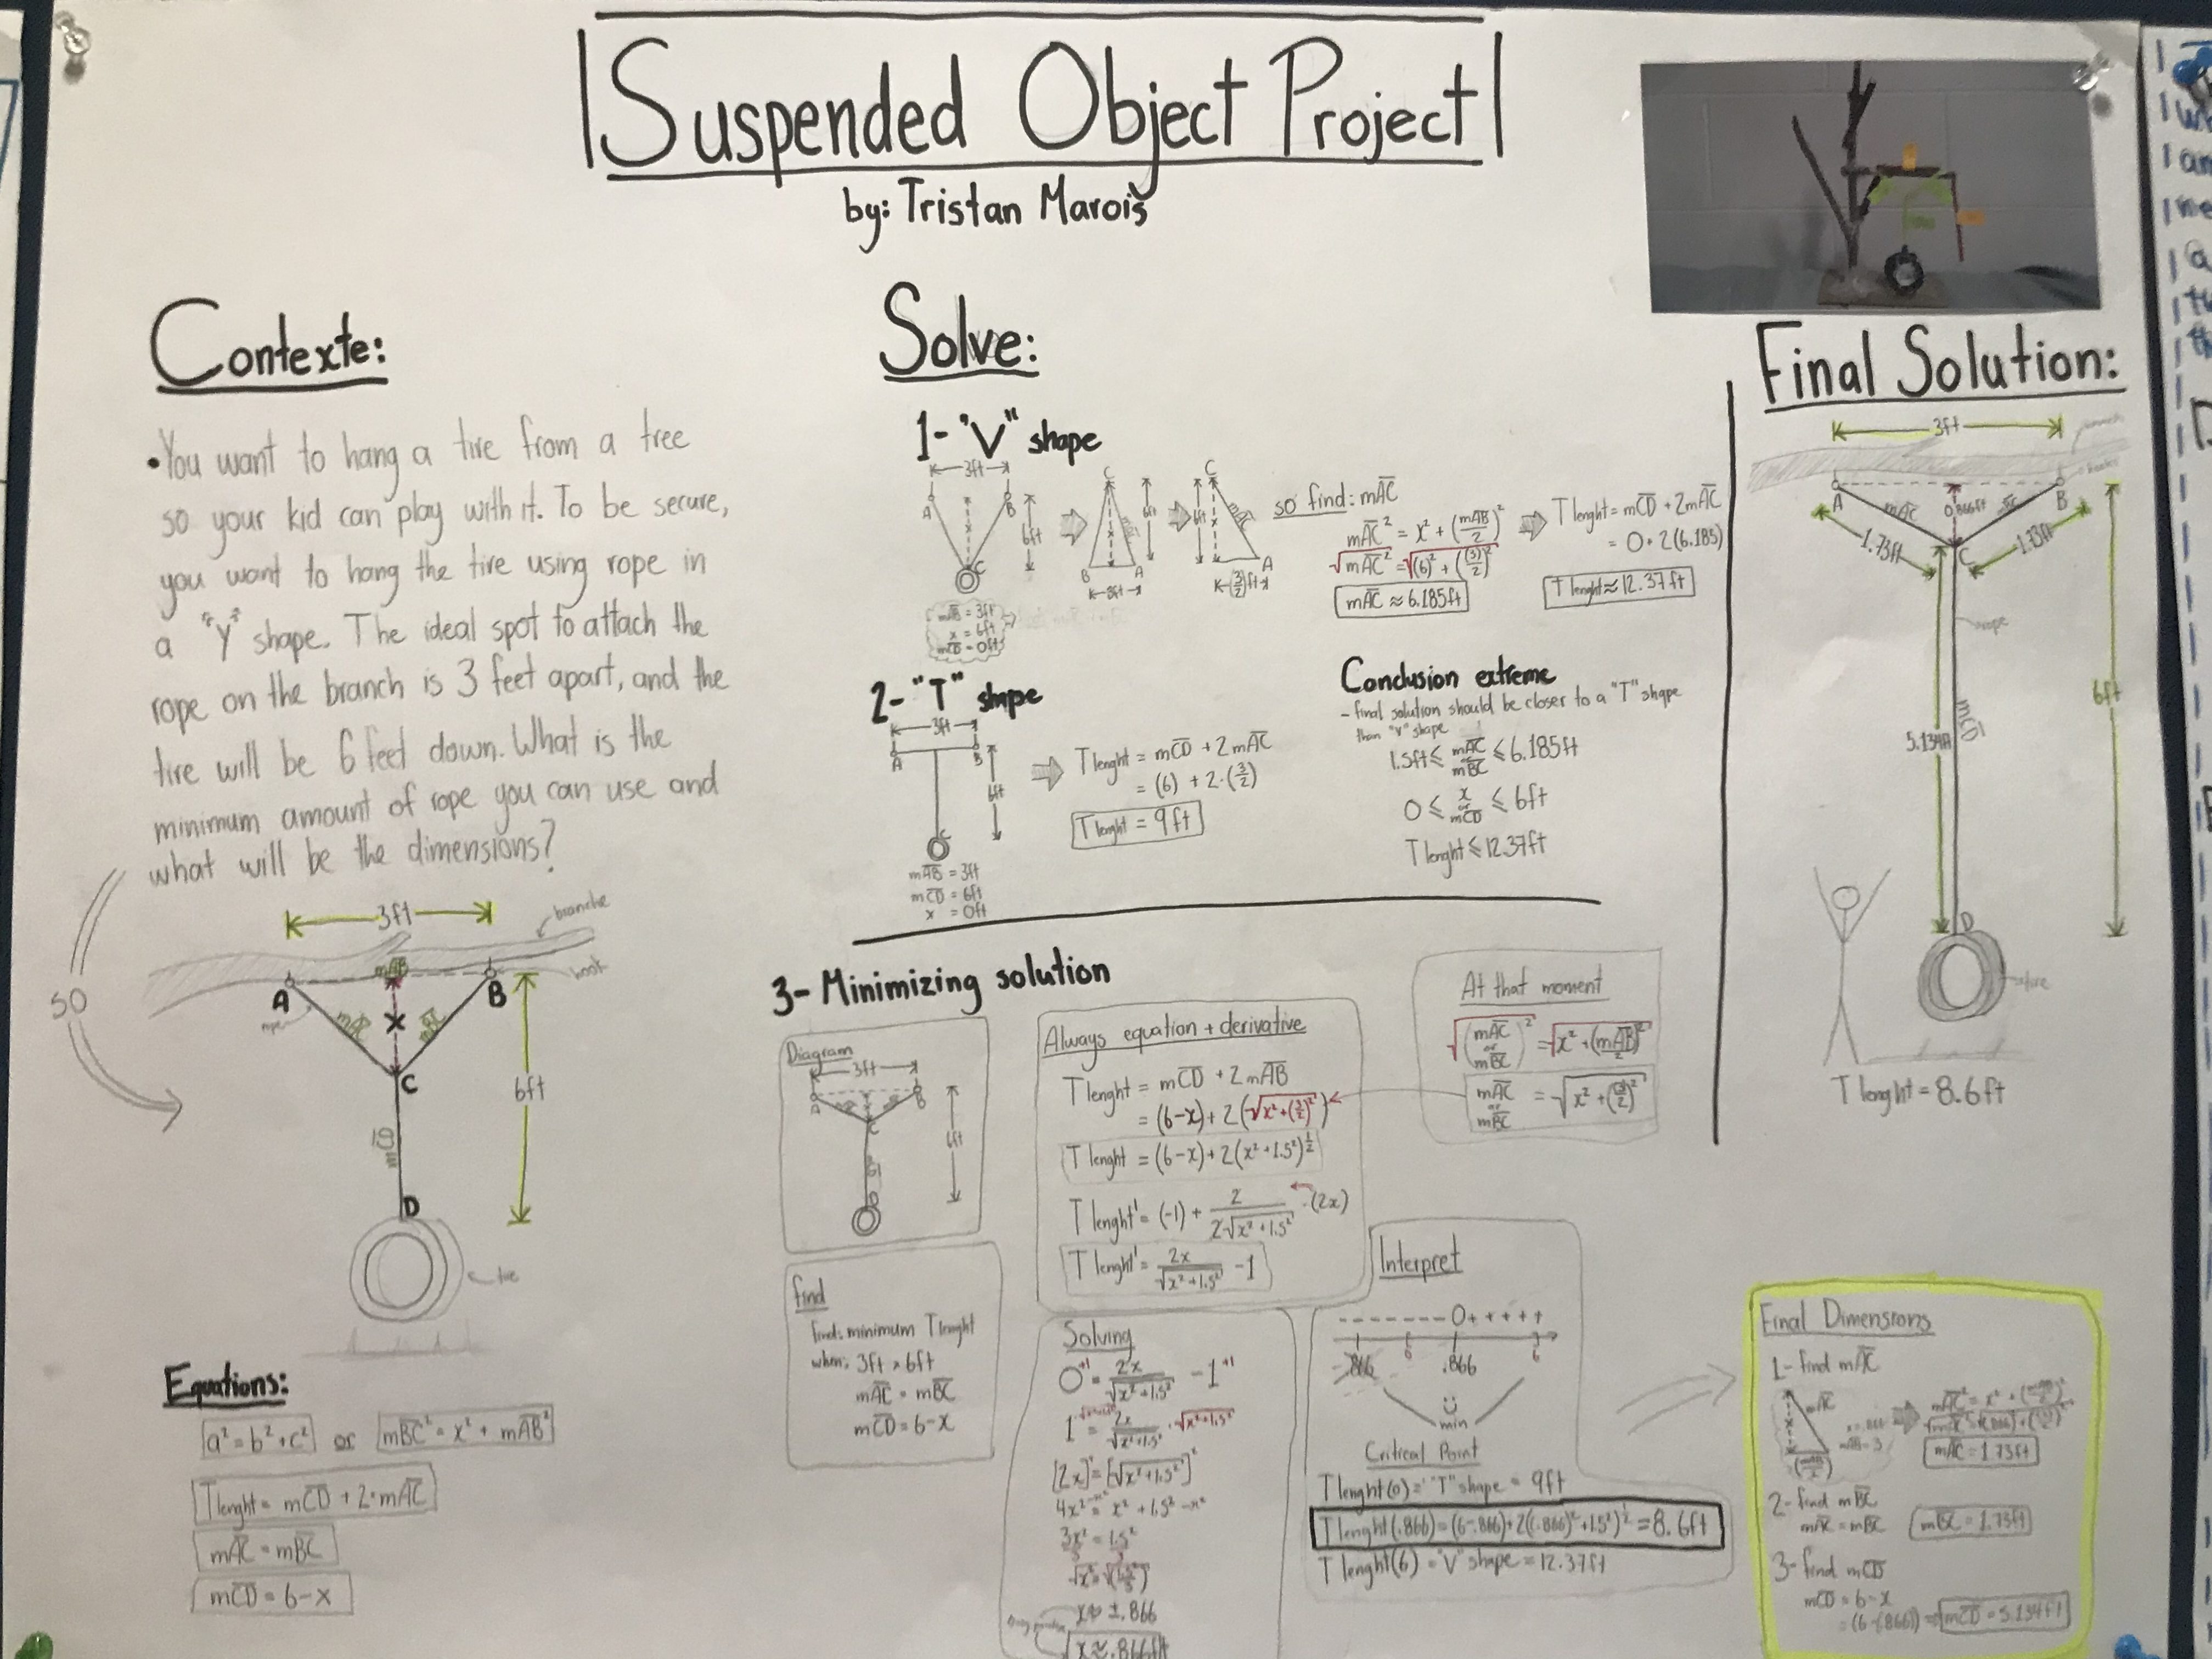 Suspended Object Project
by: Tristan Marois
Contexte:
•You want to hang a tire from a tree
so your kid can play with it. To be secure,
you want to hang the tire using rope in
a "Y" shape. The ideal spot to attach the
rope on the branch is 3 feet apart, and the
tire will be 6 feet down. What is the
minimum amount of rope you can use and
what will be the dimensions?
SO
3ft
branche
hook
mAB
A
B
rope
mAC
mBC
x
C
6ft
mCD
D
tire
Equations:
a² = b² + c² or mBC² = x² + mAB²
Tlenght = mCD + 2·mAC
mAC = mBC
mCD = 6-x
Solve:
1- "V" shape
3ft
A
B
6ft
x
C
mAB = 3ft
x = 6ft
mCD = 0ft
C
6ft
B
A
3ft
C
6ft
x
mAC
A
(3/2)ft
so find: mAC
mAC² = x² + (mAB/2)²
√mAC² = √(6)² + ((3)/2)²
mAC ≈ 6.185ft
Tlenght = mCD + 2mAC
= 0 + 2(6.185)
Tlenght ≈ 12.37ft
2- "T" shape
3ft
A
B
6ft
C
mAB = 3ft
mCD = 6ft
x = 0ft
Tlenght = mCD + 2mAC
= (6) + 2·(3/2)
Tlenght = 9ft
Conclusion extreme
- final solution should be closer to a "T" shape
than "V" shape
1.5ft ≤ mAC or mBC ≤ 6.185ft
0 ≤ x or mCD ≤ 6ft
Tlenght ≤ 12.37ft
3- Minimizing solution
Diagram
3ft
A
B
C
6ft
find
find: minimum Tlenght
when: 3ft × 6ft
mAC = mBC
mCD = 6-x
Always equation + derivative
Tlenght = mCD + 2mAB
= (6-x) + 2(√x² + (3/2)²)
Tlenght = (6-x) + 2(x² + 1.5²)^½
Tlenght' = (-1) + 2/2√x² + 1.5² · (2x)
Tlenght' = 2x/√x² + 1.5² - 1
At that moment
√(mAC or mBC)² = √x² + (mAB/2)²
mAC or mBC = √x² + (3/2)²
Solving
0+1 = 2x/√x² + 1.5² - 1+1
1·√x² + 1.5² = 2x/√x² + 1.5² · √x² + 1.5²
[2x]² = [√x² + 1.5²]²
4x² -x² = x² + 1.5² -x²
3x² = 1.5²
x ≈ ±.866
x ≈ .866ft
Interpret
- - - - - - - 0 + + + + +
-.866 0 .866 6
min
Critical Point
Tlenght(0) = "T" shape = 9ft
Tlenght(.866) = (6-.866) + 2((.866)² + 1.5²)^½ = 8.6ft
Tlenght(6) = "V" shape = 12.37ft
Final Solution:
3ft
branch
hooks
A
B
mAC
0.866ft
mBC
1.73ft
C
1.73ft
rope
mCD
5.134ft
6ft
D
tire
Tlenght = 8.6ft
Final Dimensions
1- find mAC
mAC
x
x = .866
mAB = 3
mAC² = x² + (mAB/2)²
mAC = 1.73ft
2- find mBC
mAC = mBC
mBC = 1.73ft
3- find mCD
mCD = 6-x
= (6-(.866)) → mCD = 5.134ft